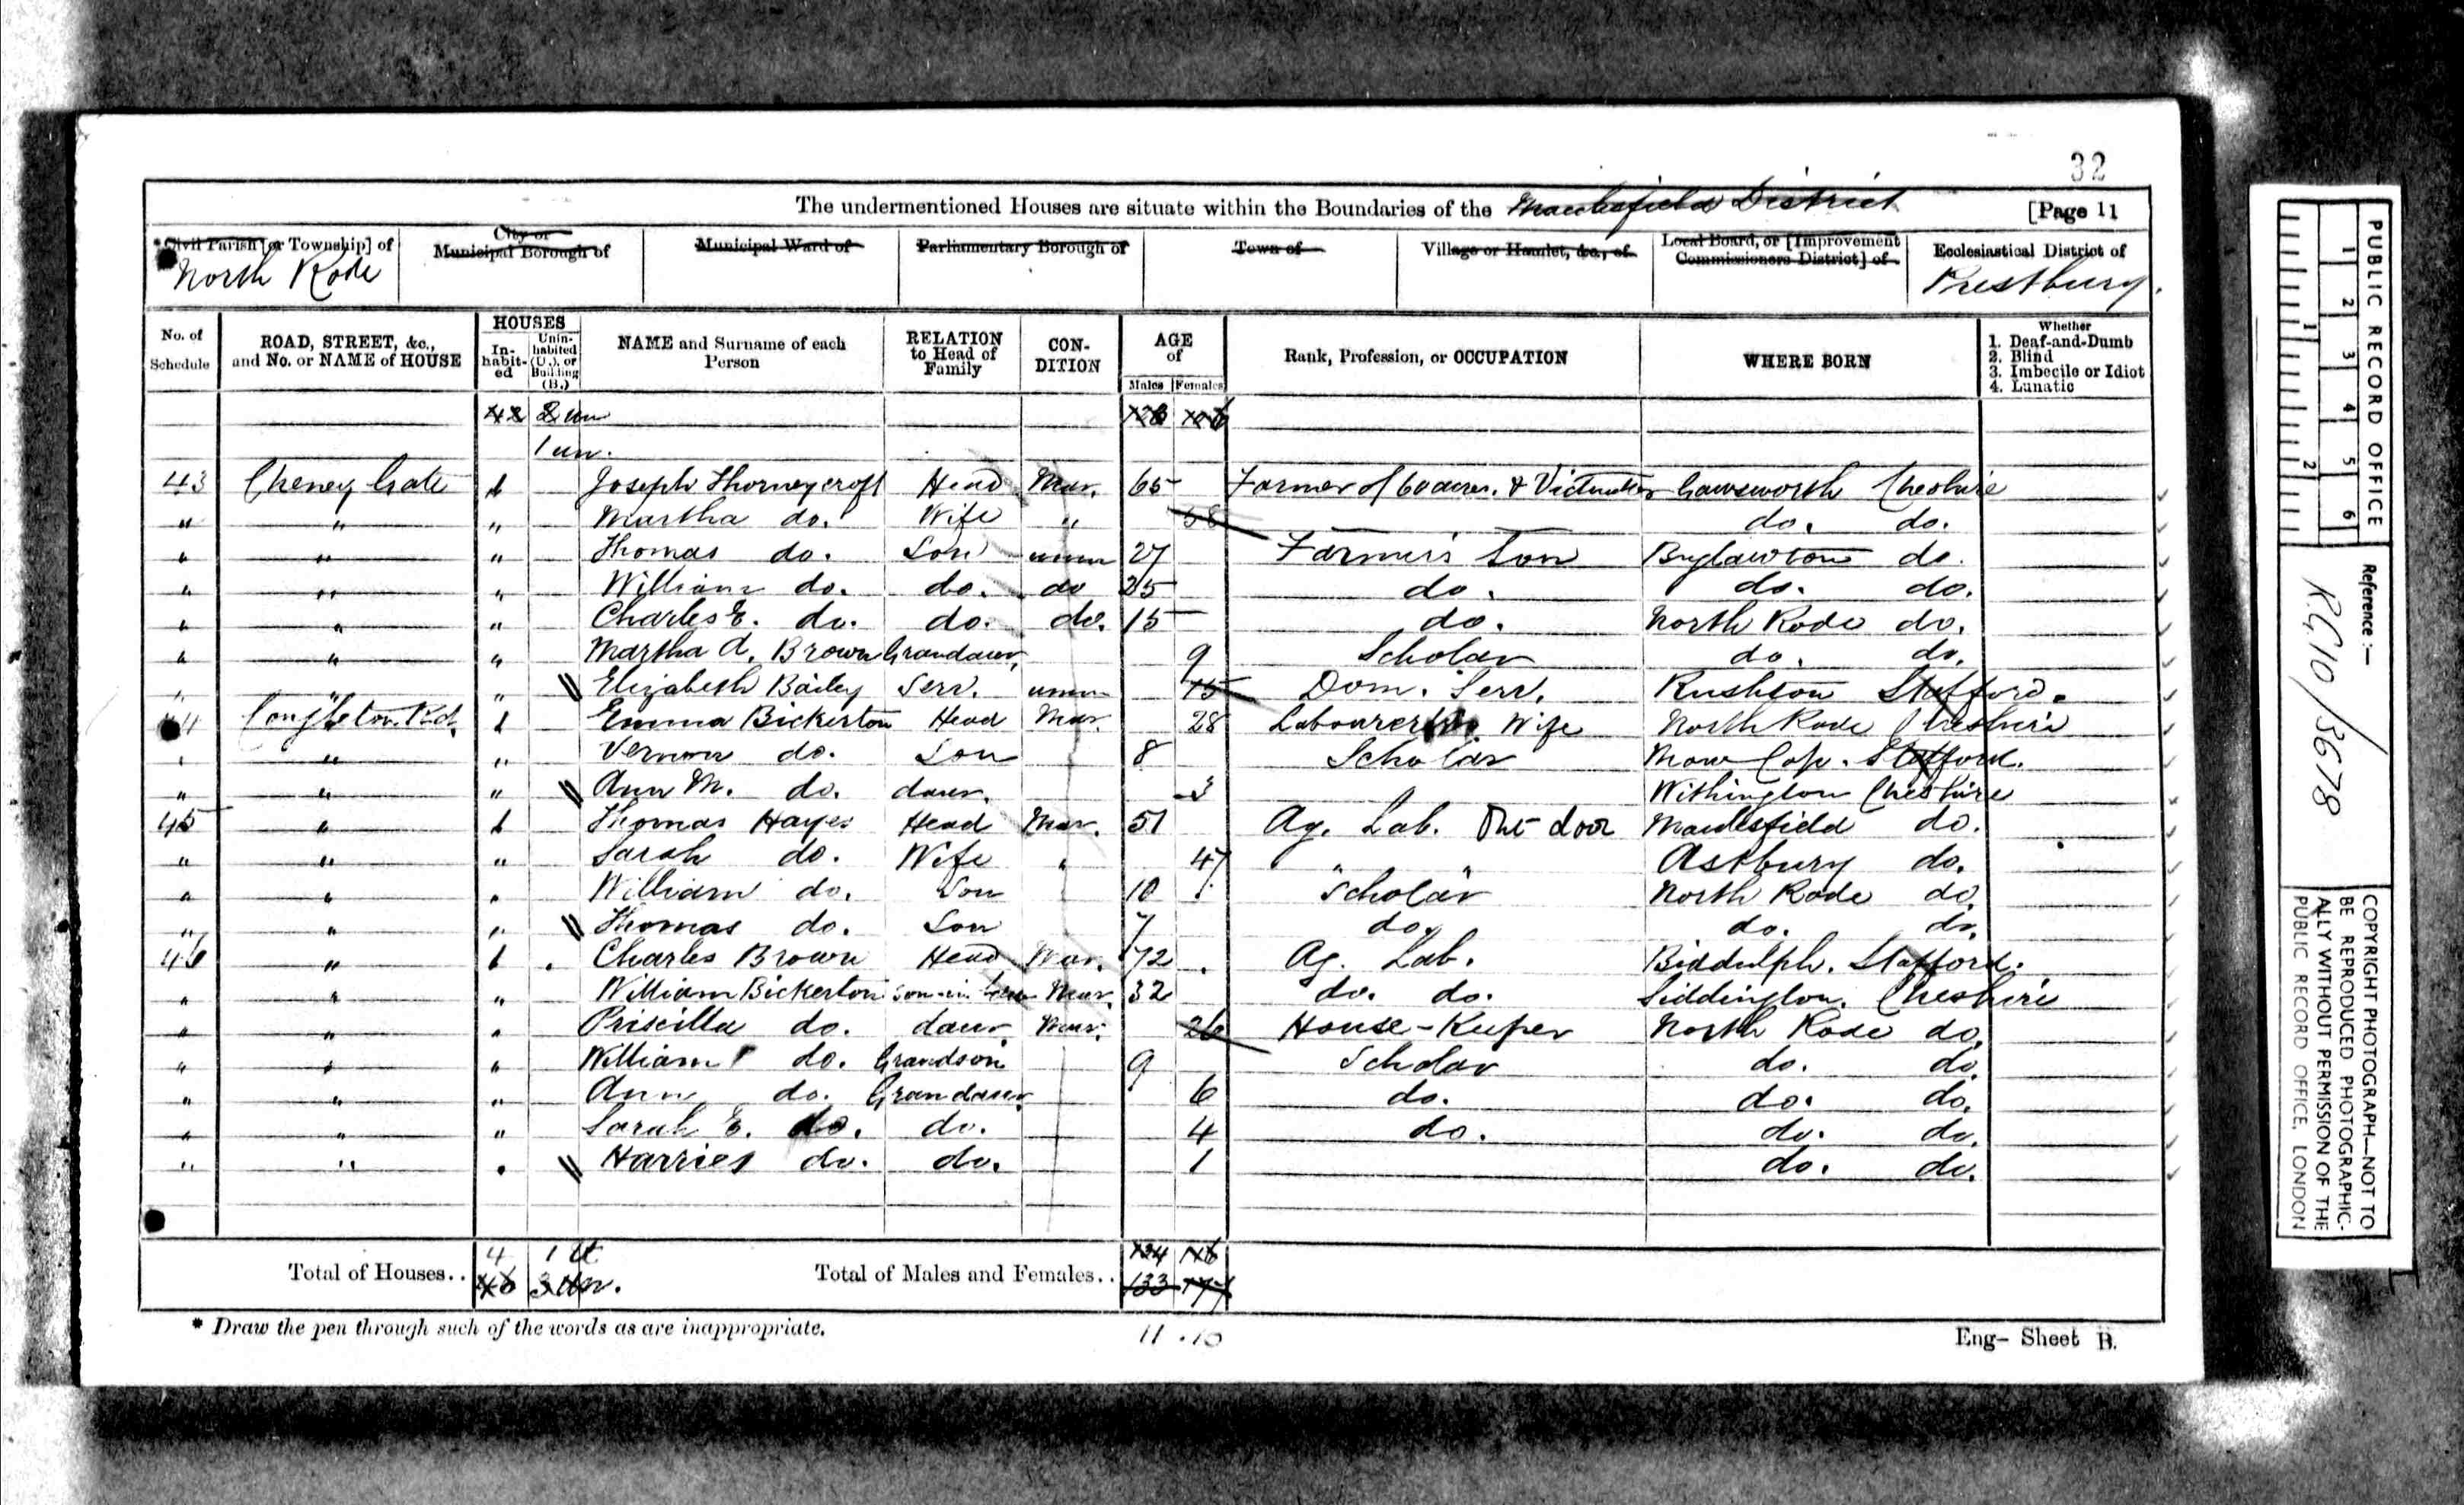 32
The undermentioned Houses are situate within the Boundaries of the Macclesfield District [Page 11
*Civil Parish [or Township] of
City or Municipal Borough of
Municipal Ward of
Parliamentary Borough of
Town of
Village or Hamlet, &c., of
Local Board, or [Improvement Commissioners District] of
Ecclesiastical District of
North Rode
Prestbury.
No. of Schedule
ROAD, STREET, &c., and No. or NAME of HOUSE
HOUSES
In-habit-ed
Unin-habited (U.), or Building (B.)
NAME and Surname of each Person
RELATION to Head of Family
CON-DITION
AGE of
Males Females
Rank, Profession, or OCCUPATION
WHERE BORN
Whether
1. Deaf-and-Dumb
2. Blind
3. Imbecile or Idiot
4. Lunatic
42 2 un
1 un.
43 Cheney Gate 1 Joseph Thorneycroft Head Mar. 65 Farmer of 60 acres. & Victualler Gawsworth Cheshire
" " " Martha do. Wife " 58 do. do.
" " " Thomas do. Son unm 27 Farmer's Son Buglawton do.
" " " William do. do. do 25 do. do. do.
" " " Charles E. do. do. do. 15 do. North Rode do.
" " " Martha A. Brown Grandaur, 9 Scholar do. do.
" " " Elizabeth Bailey Serv. unm 15 Dom. Serv. Rushton Stafford.
44 Congleton Rd. 1 Emma Bickerton Head Mar. 28 Labourer Wife North Rode Cheshire
" " " Vernon do. Son 8 Scholar Mow Cop. Stafford.
" " " Ann M. do. daur. 3 Withington Cheshire
45 " 1 Thomas Hayes Head Mar. 51 Ag. Lab. Out door Macclesfield do.
" " " Sarah do. Wife " 47 " " Astbury do.
" " " William do. Son 10 Scholar North Rode do.
" " " Thomas do. Son 7 do. do. do.
46 " 1 Charles Brown Head Mar. 72 Ag. Lab. Biddulph. Stafford.
" " " William Bickerton Son-in-law Mar. 32 do. do. Siddington. Cheshire
" " " Priscilla do. daur. Mar. 26 House-Keeper North Rode do.
" " " William do. Grandson 9 Scholar do. do.
" " " Ann do. Grandaur. 6 do. do. do.
" " " Sarah E. do. do. 4 do. do. do.
" " " Harries do. do. 1 do. do.
4 1 U
Total of Houses.. 46 3 Un. Total of Males and Females.. 133
* Draw the pen through such of the words as are inappropriate.
11 . 10
Eng- Sheet B.
PUBLIC RECORD OFFICE
1 2 3 4 5 6
1 2
Reference :-
R.G.10/3678
COPYRIGHT PHOTOGRAPH—NOT TO
BE REPRODUCED PHOTOGRAPHIC-
ALLY WITHOUT PERMISSION OF THE
PUBLIC RECORD OFFICE, LONDON